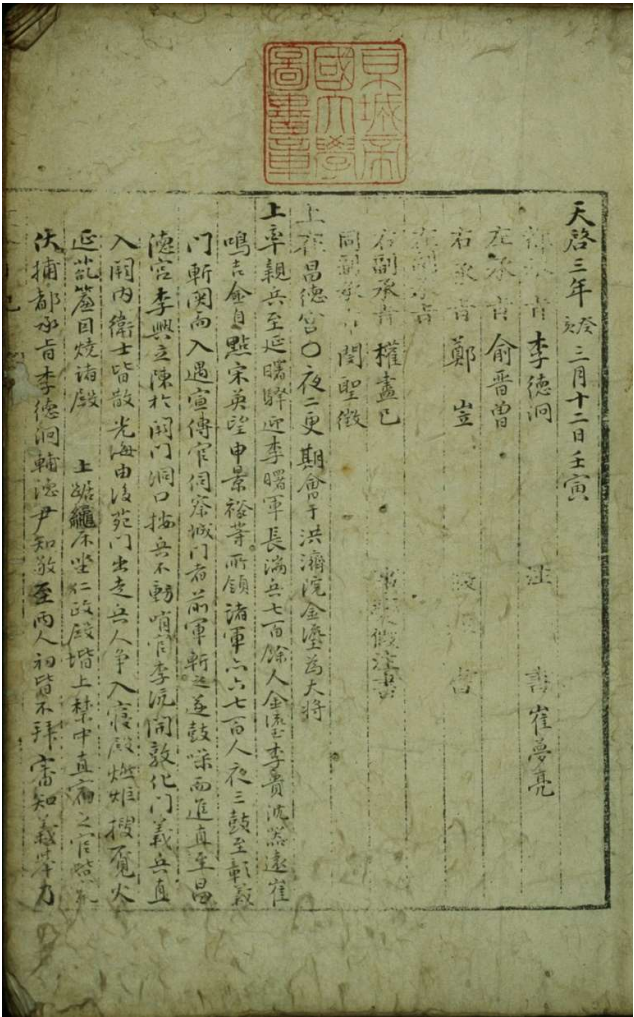 京城帝
國大學
圖書章
天啓三年癸亥三月十二日壬寅
都承旨李德泂 注書崔夢亮
左承旨俞晋曾
右承旨鄭岦
左副承旨
右副承旨權盡己 事變假注書
同副承旨閔聖徵
上在昌德宮〇夜二更期會于洪濟院金瑬為大將
上率親兵至延曙驛迎李曙軍長湍兵七百餘人金瑬李貴沈器遠崔
鳴吉金自點宋英望申景裕等所領諸軍亦六七百人夜三鼓至彰義
門斬關而入遇宣傳官伺察城門者前軍斬之遂鼓噪而進直至昌
德宮李興立陳於闕門洞口按兵不動哨官李沆開敦化門義兵直
入闕內衛士皆散光海由後苑門出走兵人爭入寢殿燃炬搜覓火
延茿簾因燒諸殿 上踞龍床坐仁政殿堦上禁中直宿之官皆
伏捕都承旨李德泂輔德尹知敬至兩人初皆不拜審知義擧乃